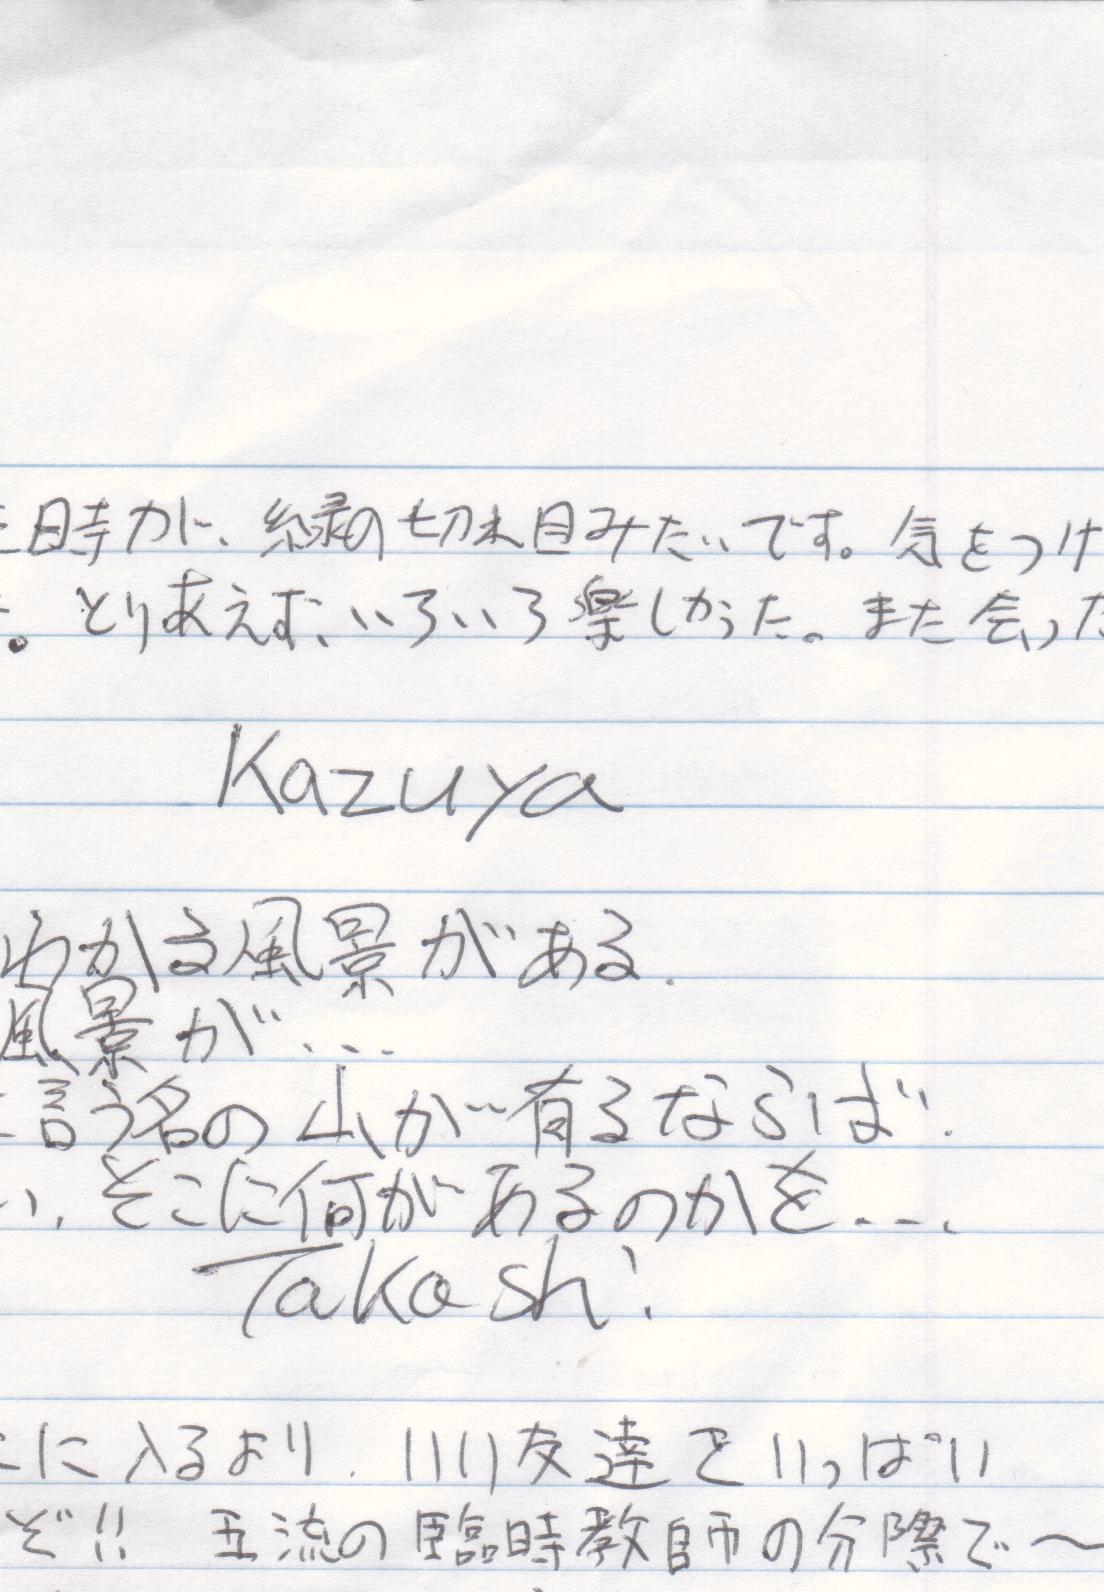 と時が、縁の切れ目みたいです。気をつけ
。とりあえず、いろいろ楽しかった。また会った
Kazuya
わかる風景がある.
風景が...
と言う名の山が有るならば.
い.そこに何があるのかを....
Takashi.
こに入るより.いい友達をいっぱい
ぞ!! 五流の臨時教師の分際で〜